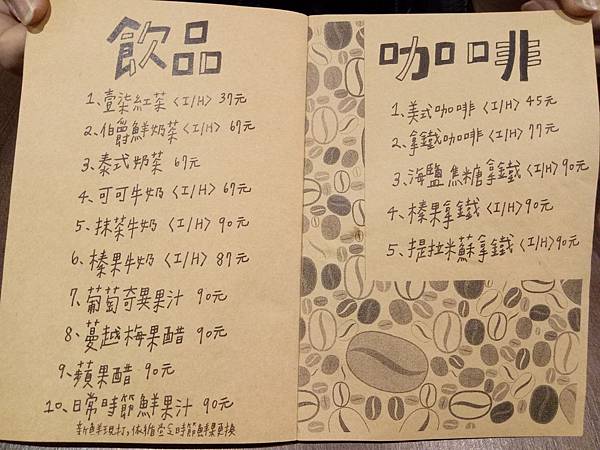 飲品
1、壹柒紅茶〈I/H〉37元
2、伯爵鮮奶茶〈I/H〉67元
3、泰式奶茶 67元
4、可可牛奶〈I/H〉67元
5、抹茶牛奶〈I/H〉90元
6、榛果牛奶〈I/H〉87元
7、葡萄奇異果汁 90元
8、蔓越梅果醋 90元
9、蘋果醋 90元
10、日常時節鮮果汁 90元
新鮮現打,依循當令時節鮮果更換
咖啡
1、美式咖啡〈I/H〉45元
2、拿鐵咖啡〈I/H〉77元
3、海鹽焦糖拿鐵〈I/H〉90元
4、榛果拿鐵〈I/H〉90元
5、提拉米蘇拿鐵〈I/H〉90元